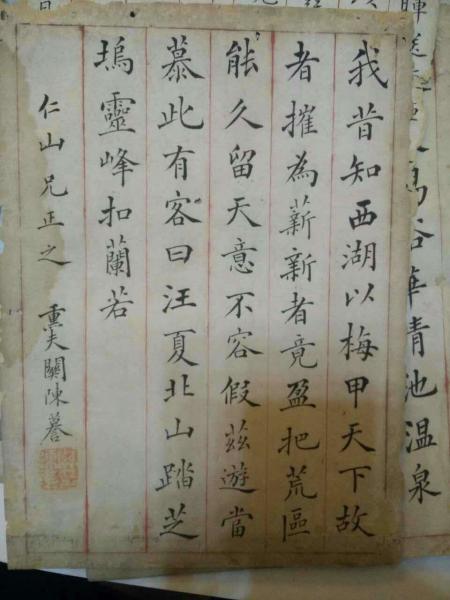 華清池温泉
我昔知西湖以梅甲天下故
者摧為薪新者竟盈把荒區
能久留天意不容假茲遊當
慕此有客曰汪夏北山踏芝
塢靈峰扣蘭若
仁山兄正之 重夫關陳謩